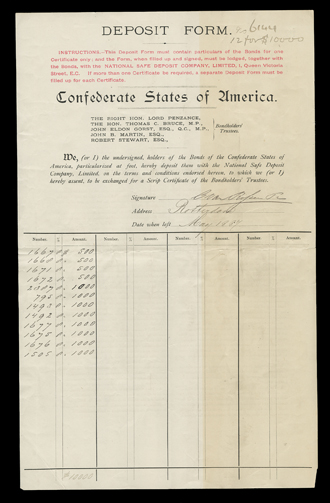 DEPOSIT FORM.
12 for $10000
INSTRUCTIONS.—This Deposit Form must contain particulars of the Bonds for one
Certificate only; and the Form, when filled up and signed, must be lodged, together with
the Bonds, with the NATIONAL SAFE DEPOSIT COMPANY, LIMITED, 1, Queen Victoria
Street, E.C. If more than one Certificate be required, a separate Deposit Form must be
filled up for each Certificate.
Confederate States of America.
THE RIGHT HON. LORD PENZANCE,
THE HON. THOMAS C. BRUCE, M.P.,
JOHN ELDON GORST, ESQ., Q.C., M.P.,
JOHN B. MARTIN, ESQ.,
ROBERT STEWART, ESQ.,
Bondholders'
Trustees.
We, (or I) the undersigned, holders of the Bonds of the Confederate States of
America, particularised at foot, hereby deposit them with the National Safe Deposit
Company, Limited, on the terms and conditions endorsed hereon, to which we (or I)
hereby assent, to be exchanged for a Scrip Certificate of the Bondholders' Trustees.
Signature
Address
Date when left May
Number. Amount. Number. Amount. Number. Amount. Number. Amount.
500
500
1671 500
1672 500
1000
1000
1493 1000
1492 1000
1677 1000
1675 1000
1676 1000
1505 1000